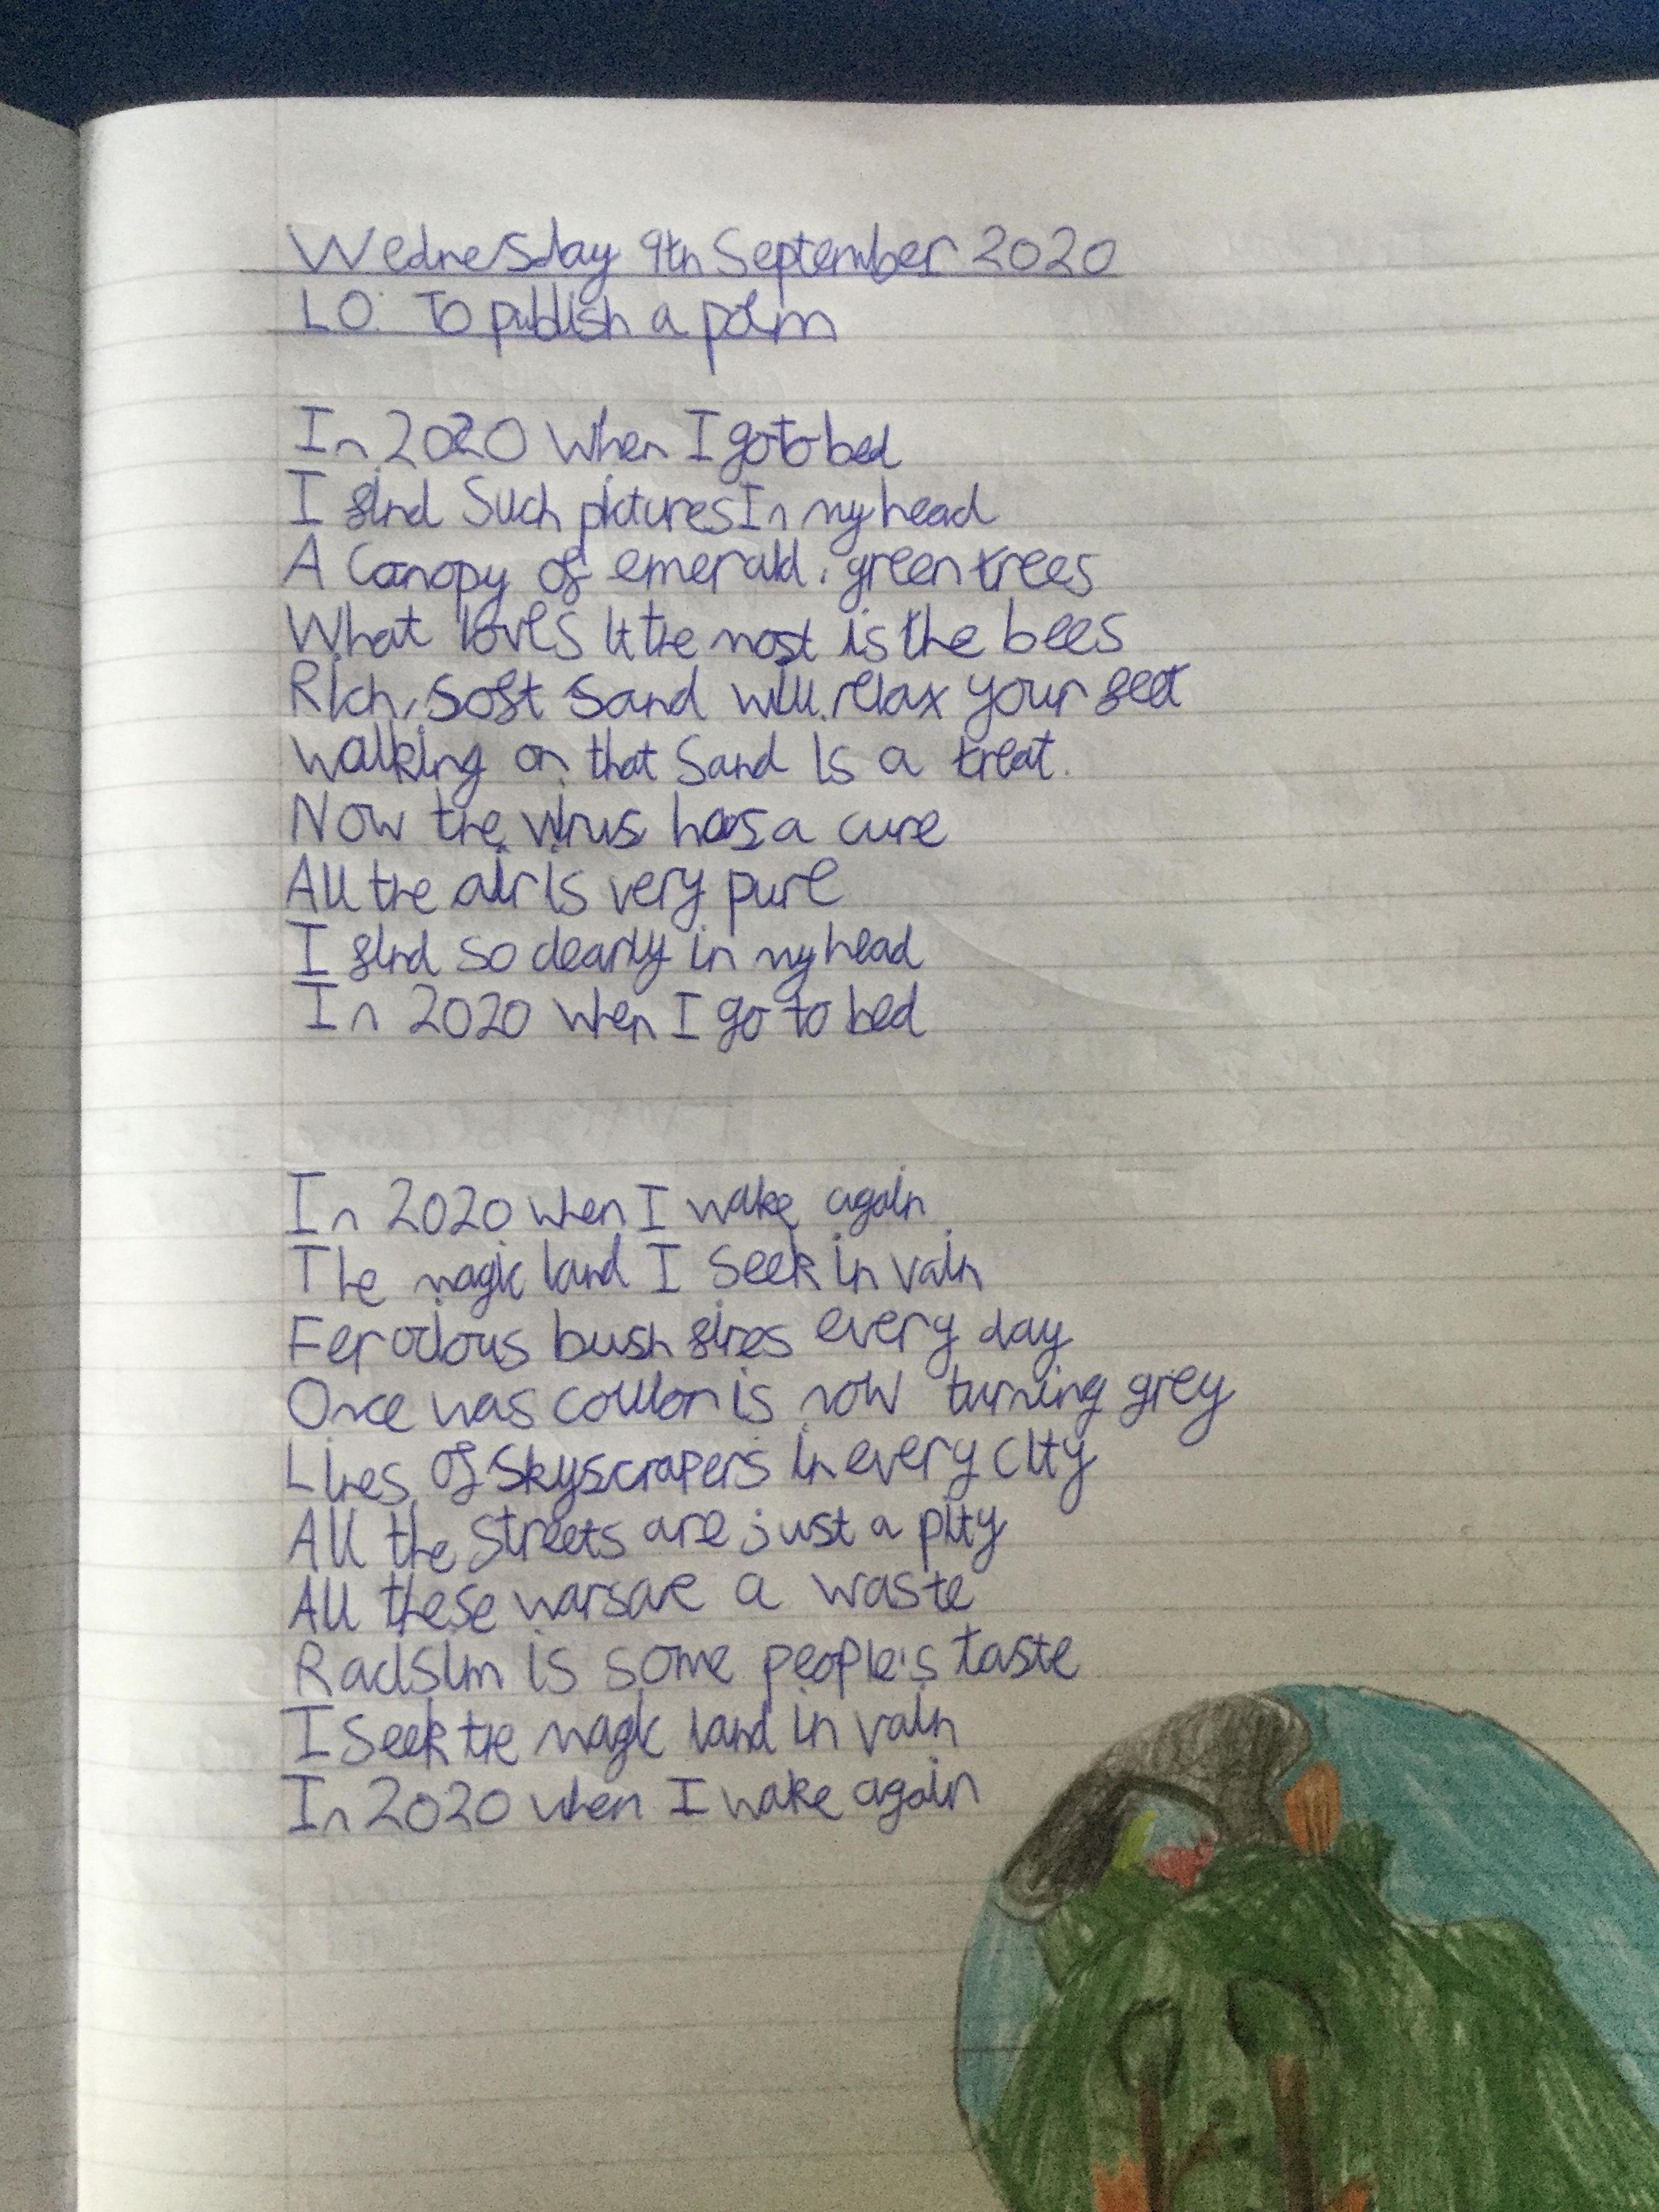 Wednesday 9th September 2020
LO: To publish a poem
In 2020 when I go to bed
I find Such pictures In my head
A Canopy of emerald, green trees
What loves it the most is the bees
Rich, soft sand will relax your feet
Walking on that sand is a treat.
Now the virus has a cure
All the air is very pure
I find so clearly in my head
In 2020 when I go to bed
In 2020 when I wake again
The magic land I seek in vain
Ferocious bush fires every day
Once was is now turning grey
Lines of skyscrapers in every city
All the streets are just a pity
All these wars are a waste
Racisim is some people's taste
I seek the magic land in vain
In 2020 when I wake again